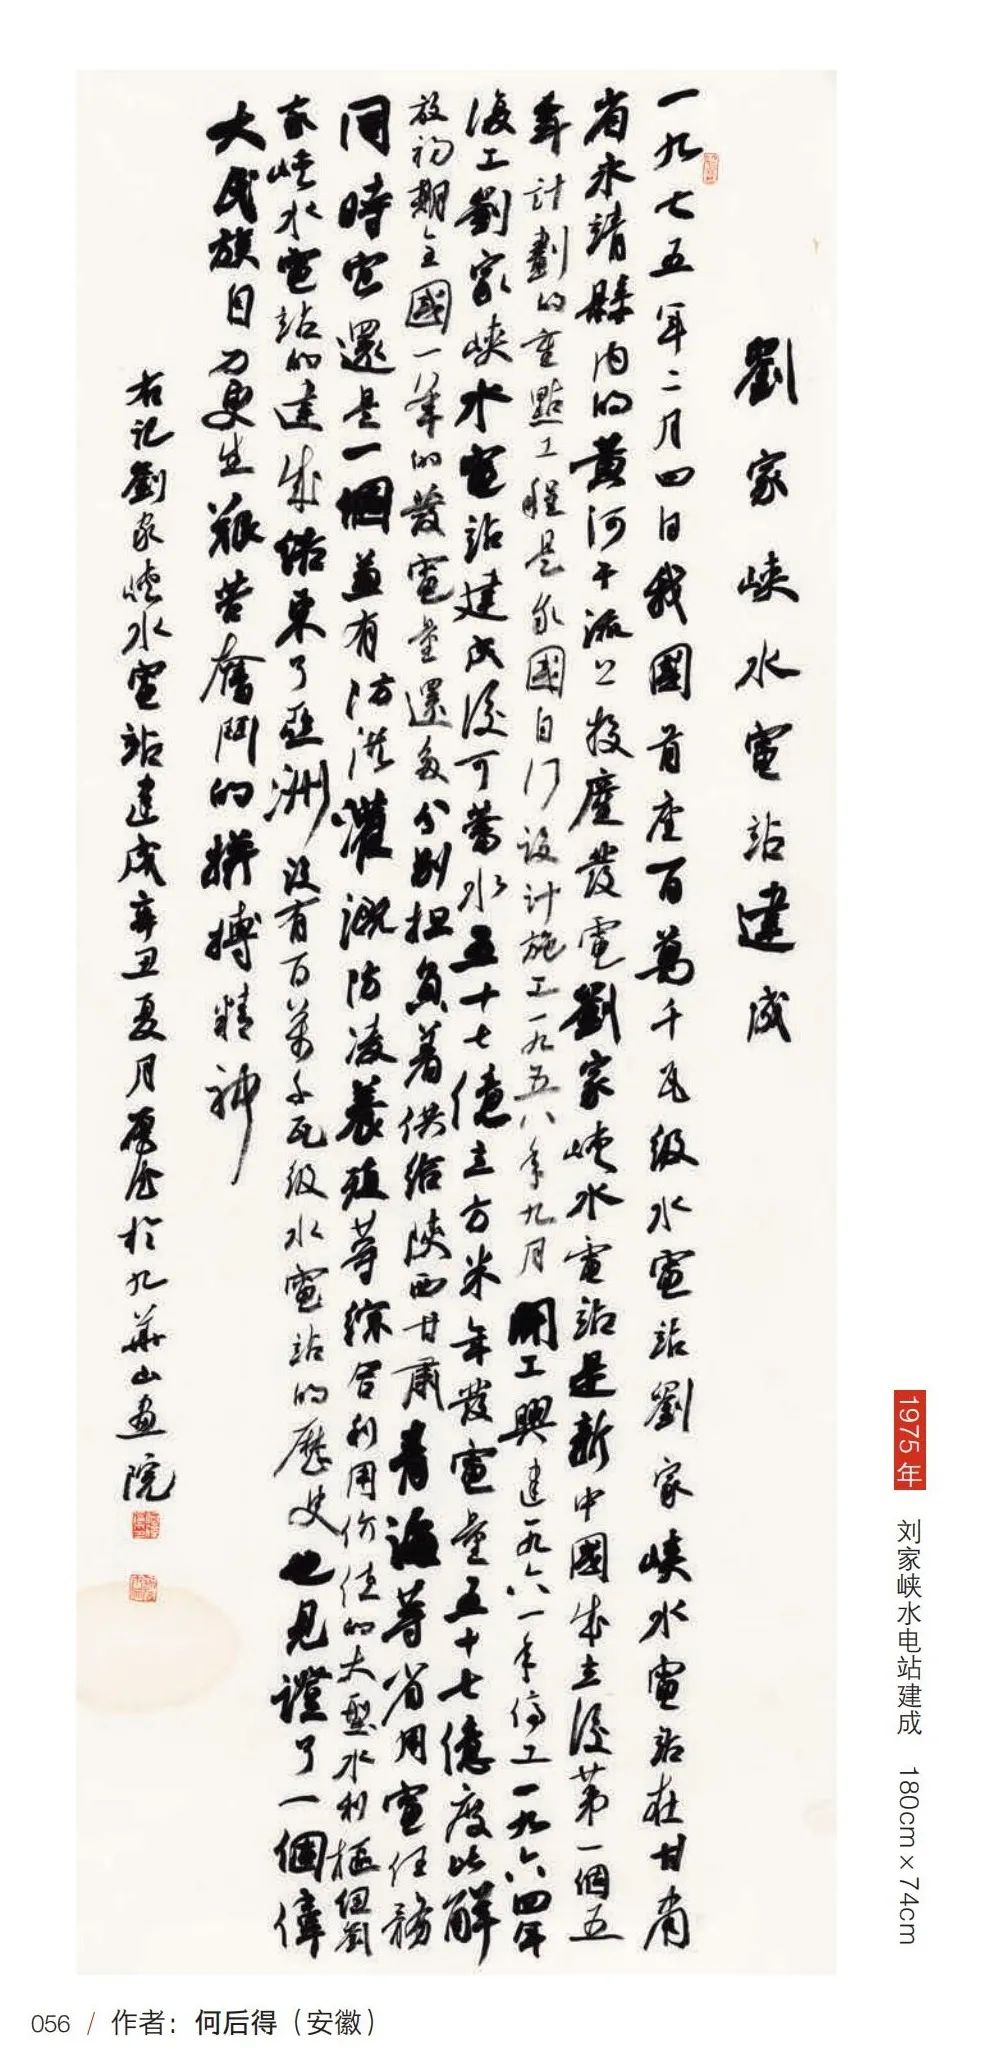 劉家峽水電站建成
一九七五年二月四日我國首座百萬千瓦級水電站劉家峽水電站在甘肅
省永靖縣內的黃河干流上投產發電劉家峽水電站是新中國成立後第一個五
年計劃的重點工程是我國自行設計施工一九五八年九月開工興建一九六一年停工一九六四年
復工劉家峽水電站建成後可蓄水五十七億立方米年發電量五十七億度比解
放初期全國一年的發電量還多分別担負着供給陝西甘肅青海等省用電任務
同時它還是一個兼有防洪灌溉防凌養殖等綜合利用价值的大型水利樞紐劉
家峽水電站的建成結束了亞洲沒有百萬千瓦級水電站的歷史也見證了一個偉
大民族自力更生艱苦奮鬥的拼搏精神
右記劉家峽水電站建成辛丑夏月厚德於九華山画院
1975年 刘家峡水电站建成 180cm×74cm
056 / 作者：何后得（安徽）